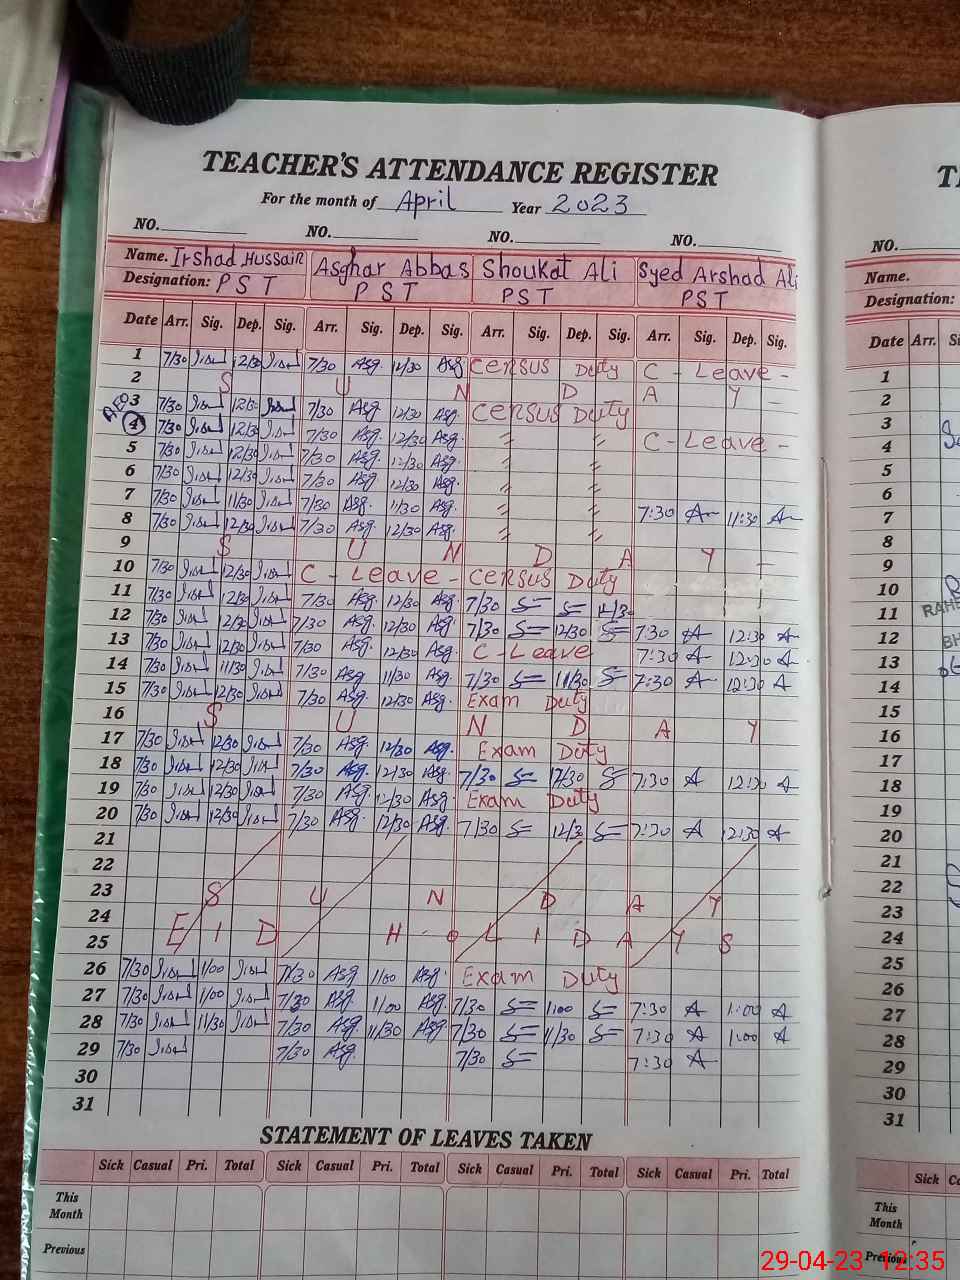 TEACHER'S ATTENDANCE REGISTER
For the month of April Year 2023
NO. NO. NO. NO. NO.
Name. Irshad Hussain Asghar Abbas Shoukat Ali Syed Arshad Ali Name.
Designation: PST PST PST PST Designation:
Date Arr. Sig. Dep. Sig. Arr. Sig. Dep. Sig. Arr. Sig. Dep. Sig. Arr. Sig. Dep. Sig. Date Arr.
1 7/30 12/30 7/30 Asg. 12/30 Asg. Census Duty C - Leave - 1
2 S U N D A Y - 2
AEO 3 7/30 12/30 7/30 Asg. 12/30 Asg. Census Duty 3
4 7/30 12/30 7/30 Asg. 12/30 Asg. " " C - Leave - 4
5 7/30 12/30 7/30 Asg. 12/30 Asg. " " 5
6 7/30 12/30 7/30 Asg. 12/30 Asg. " " 6
7 7/30 11/30 7/30 Asg. 11/30 Asg. " " 7:30 A 11:30 A 7
8 7/30 12/30 7/30 Asg. 12/30 Asg. " " 8
9 S U N D A Y - 9
10 7/30 12/30 C - Leave - Census Duty 10
11 7/30 12/30 7/30 Asg. 12/30 Asg. 7/30 12/30 11
12 7/30 12/30 7/30 Asg. 12/30 Asg. 7/30 12/30 7:30 A 12:30 A 12
13 7/30 12/30 7/30 Asg. 12/30 Asg. C - Leave 7:30 A 12:30 A 13
14 7/30 11/30 7/30 Asg. 11/30 Asg. 7/30 11/30 7:30 A 12:30 A 14
15 7/30 12/30 7/30 Asg. 12/30 Asg. Exam Duty 15
16 S U N D A Y 16
17 7/30 12/30 7/30 Asg. 12/30 Asg. Exam Duty 17
18 7/30 12/30 7/30 Asg. 12/30 Asg. 7/30 12/30 7:30 A 12:30 A 18
19 7/30 12/30 7/30 Asg. 12/30 Asg. Exam Duty 19
20 7/30 12/30 7/30 Asg. 12/30 Asg. 7/30 12/30 7:30 A 12:30 A 20
21 21
22 22
23 S U N D A Y 23
24 24
25 E I D H O L I D A Y S 25
26 7/30 1/00 7/30 Asg 1/00 Asg. Exam Duty 26
27 7/30 1/00 7/30 Asg 1/00 Asg 7/30 1:00 7:30 A 1:00 A 27
28 7/30 11/30 7/30 Asg 11/30 Asg 7/30 11/30 7:30 A 1:00 A 28
29 7/30 7/30 Asg. 7/30 7:30 A 29
30 30
31 31
STATEMENT OF LEAVES TAKEN
Sick Casual Pri. Total Sick Casual Pri. Total Sick Casual Pri. Total Sick Casual Pri. Total Sick
This Month This Month
Previous Previous
29-04-23 12:35